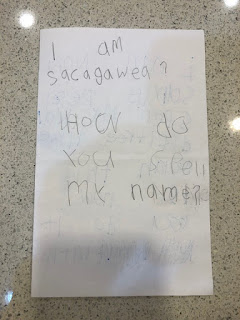 I am
sacagawea?
How do
You spell
my name?